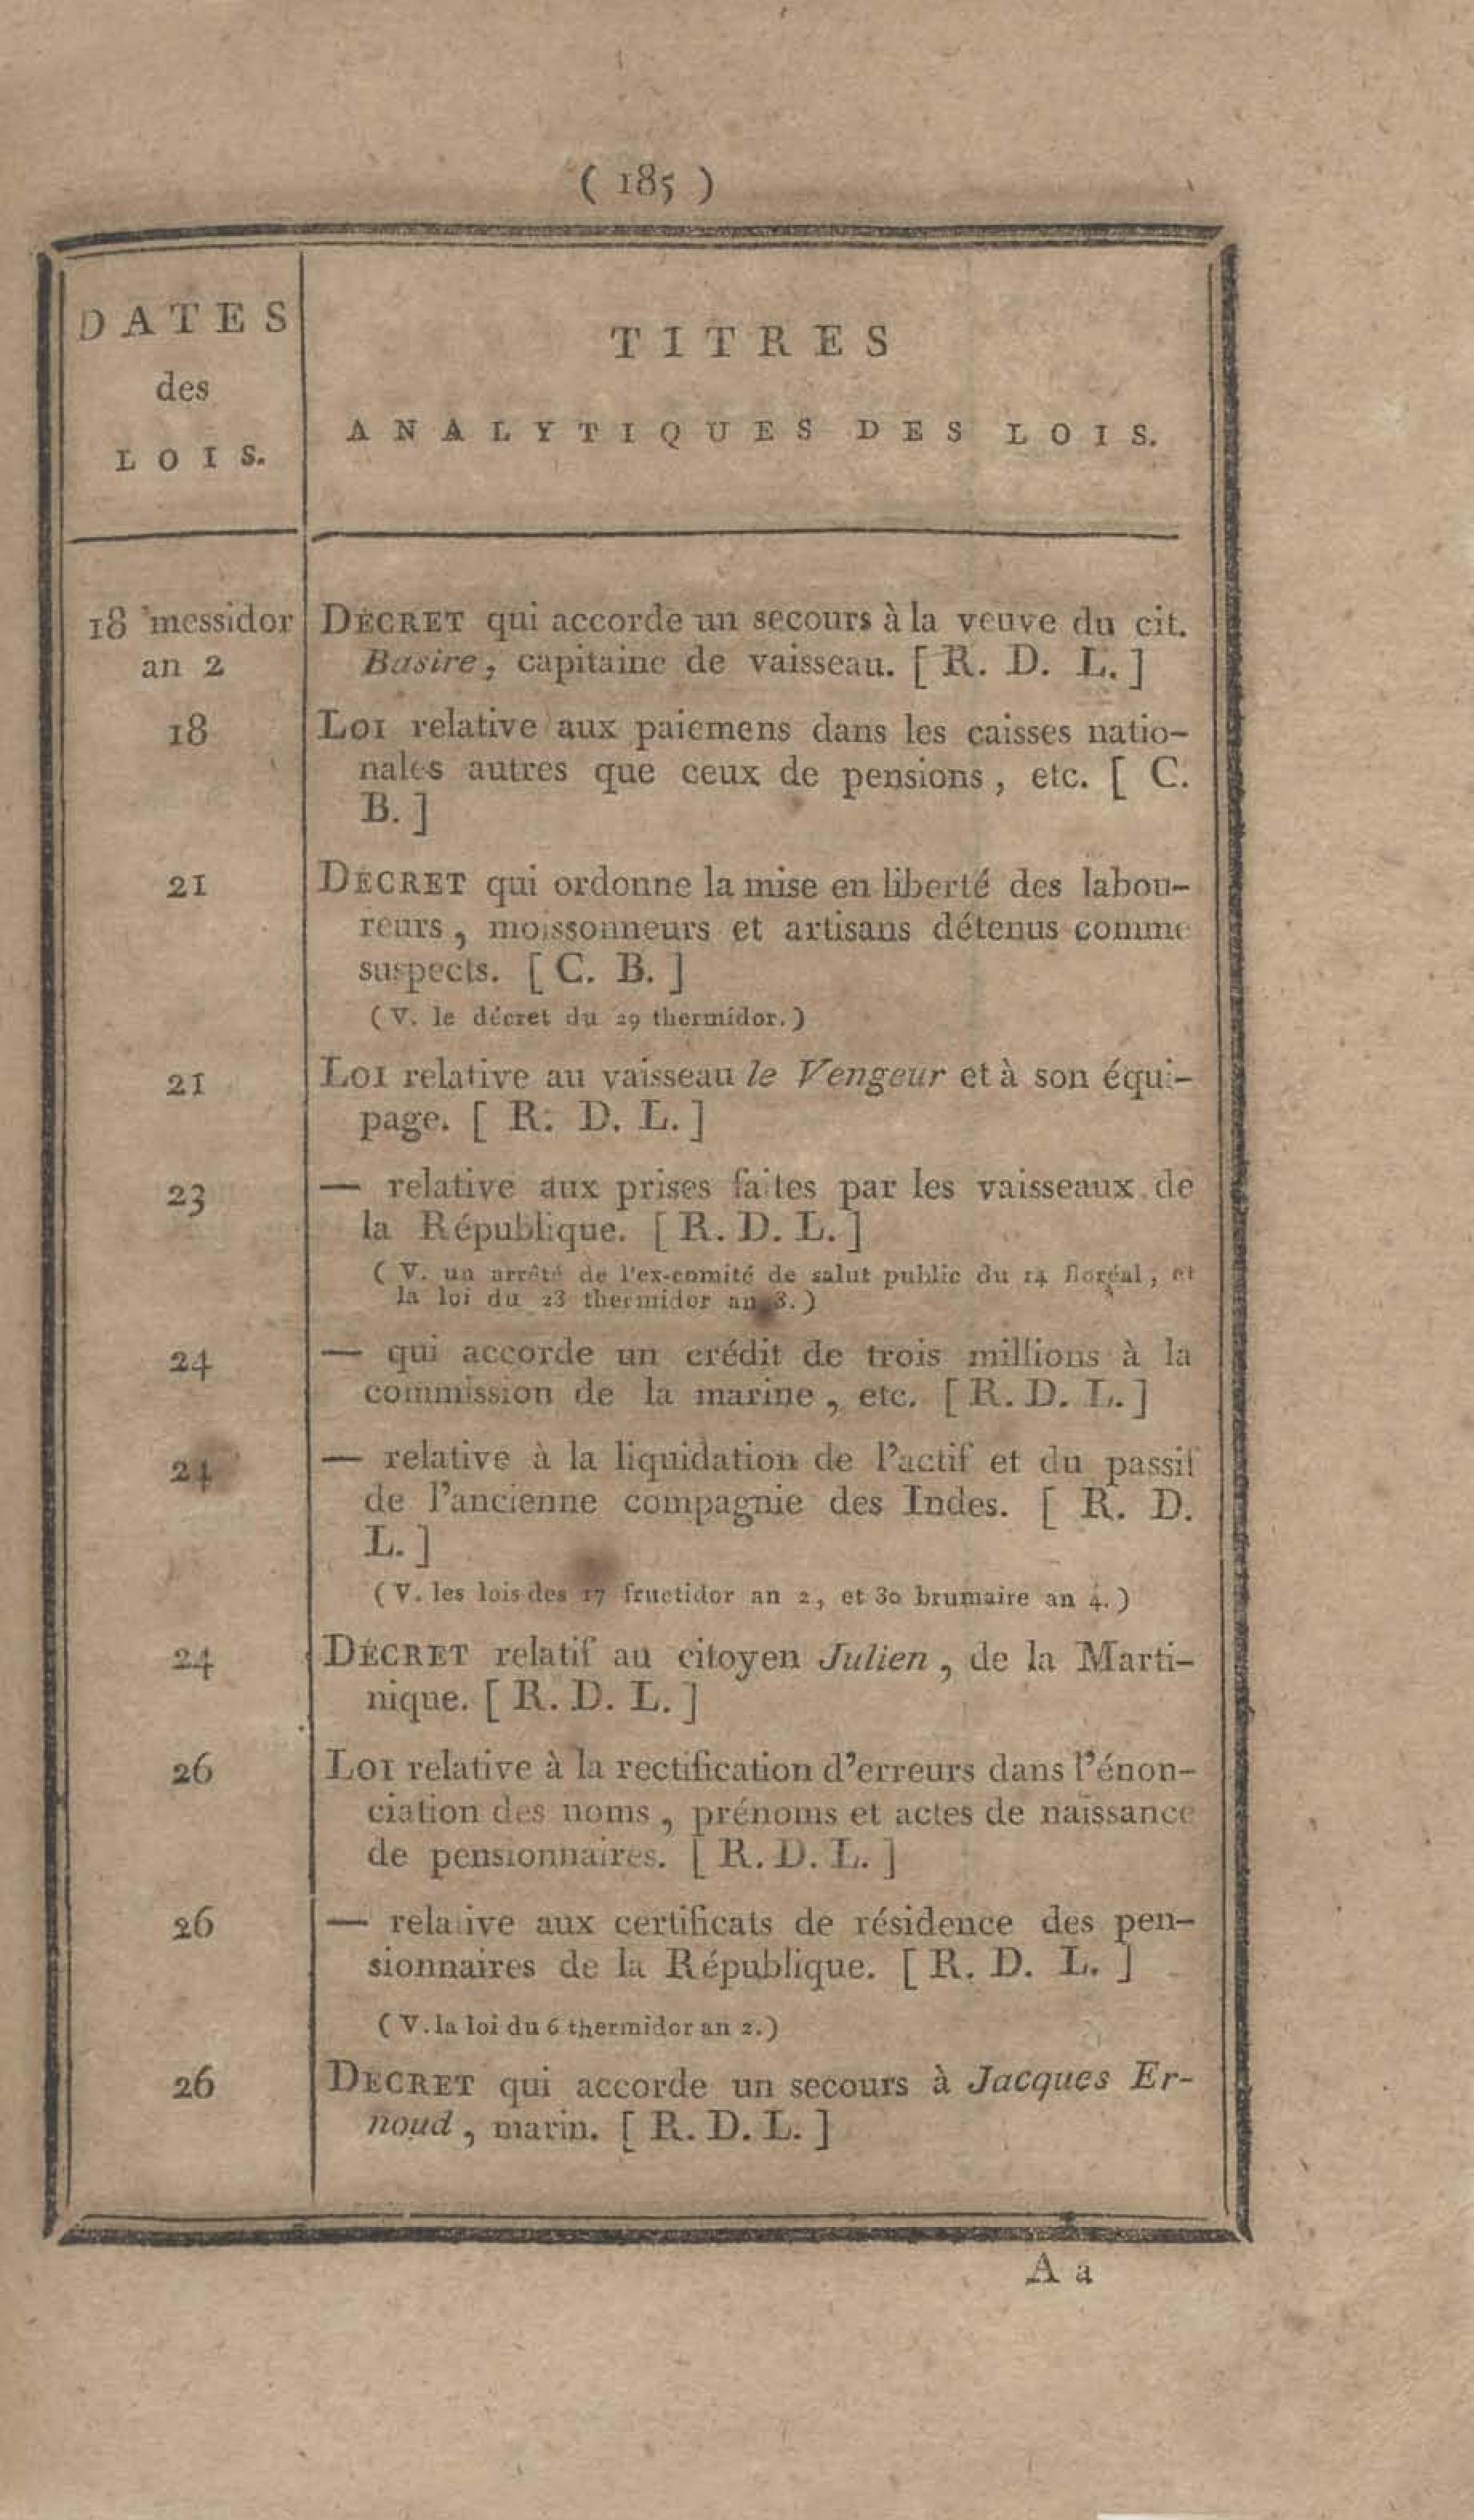 ( 185 )
DATES
des
LOIS.
TITRES
ANALYTIQUES DES LOIS.
18 messidor
an 2
DÉCRET qui accorde un secours à la veuve du cit.
Basire, capitaine de vaisseau. [ R. D. L. ]
18
LOI relative aux paiemens dans les caisses natio-
nales autres que ceux de pensions, etc. [ C.
B. ]
21
DÉCRET qui ordonne la mise en liberté des labou-
reurs, moissonneurs et artisans détenus comme
suspects. [ C. B. ]
( V. le décret du 29 thermidor. )
21
LOI relative au vaisseau le Vengeur et à son équi-
page. [ R. D. L. ]
23
— relative aux prises faites par les vaisseaux de
la République. [ R. D. L. ]
( V. un arrêté de l'ex-comité de salut public du 14 floréal, et
la loi du 23 thermidor an 3. )
24
— qui accorde un crédit de trois millions à la
commission de la marine, etc. [ R. D. L. ]
24
— relative à la liquidation de l'actif et du passif
de l'ancienne compagnie des Indes. [ R. D.
L. ]
( V. les lois des 17 fructidor an 2, et 30 brumaire an 4. )
24
DÉCRET relatif au citoyen Julien, de la Marti-
nique. [ R. D. L. ]
26
LOI relative à la rectification d'erreurs dans l'énon-
ciation des noms, prénoms et actes de naissance
de pensionnaires. [ R. D. L. ]
26
— relative aux certificats de résidence des pen-
sionnaires de la République. [ R. D. L. ]
( V. la loi du 6 thermidor an 2. )
26
DECRET qui accorde un secours à Jacques Er-
noud, marin. [ R. D. L. ]
A a